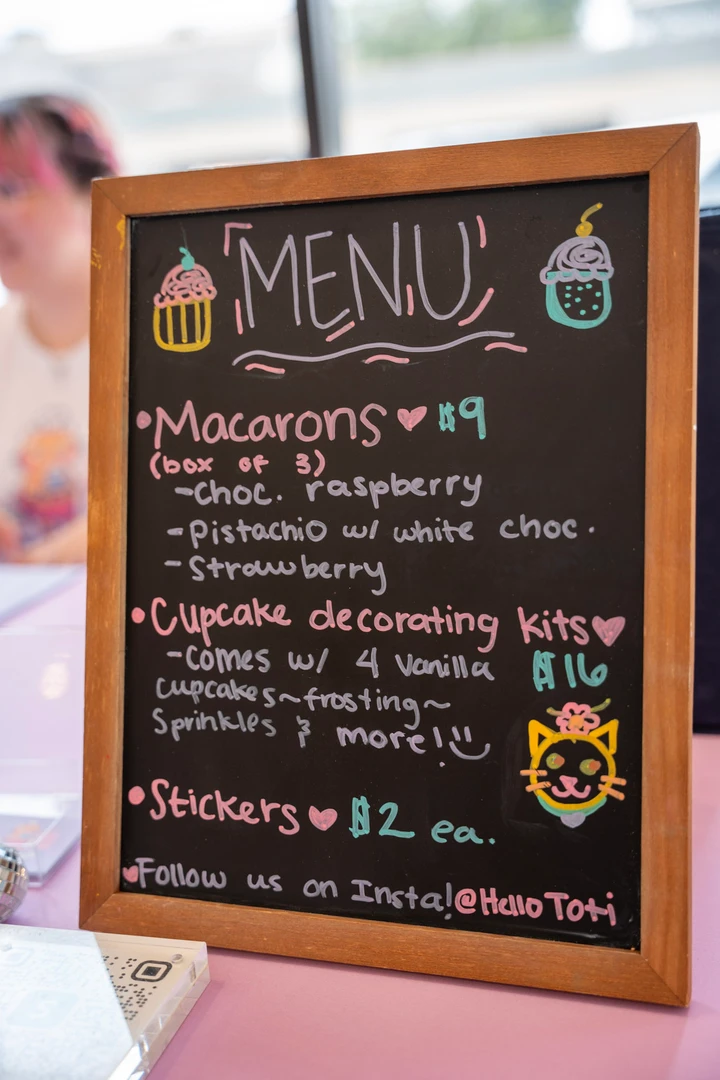 MENU
•Macarons ♥ $9
(box of 3)
-choc. raspberry
-Pistachio w/ white choc.
-Strawberry
•Cupcake decorating kits♥
-comes w/ 4 vanilla $16
cupcakes~frosting~
Sprinkles & more! :)
•Stickers ♥ $2 ea.
♥Follow us on Insta!@HelloToti